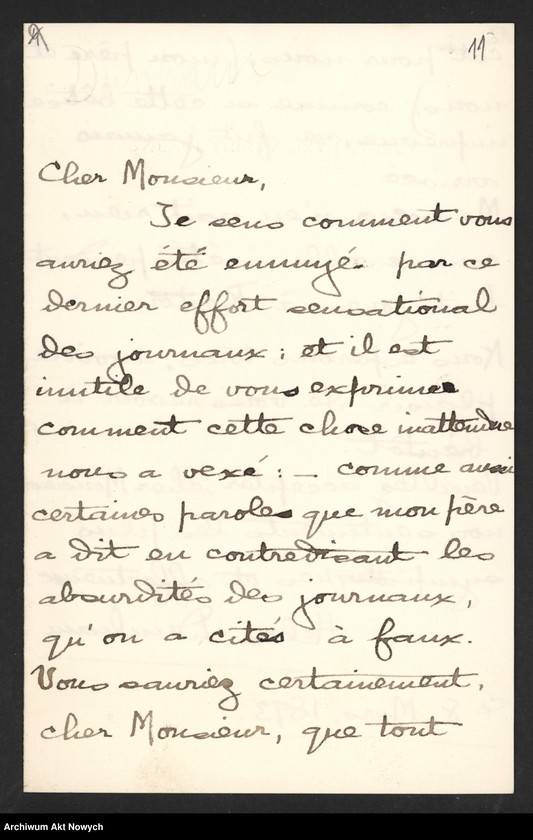 11
Cher Monsieur,
Je sens comment vous
auriez été ennuyé par ce
dernier effort sensational
des journaux ; et il est
inutile de vous exprimer
comment cette chose inattendue
nous a vexé : — comme aussi
certaines paroles que mon père
a dit en contredisant les
absurdités des journaux,
qu'on a cités à faux.
Vous sauriez certainement,
cher Monsieur, que tout
Archiwum Akt Nowych